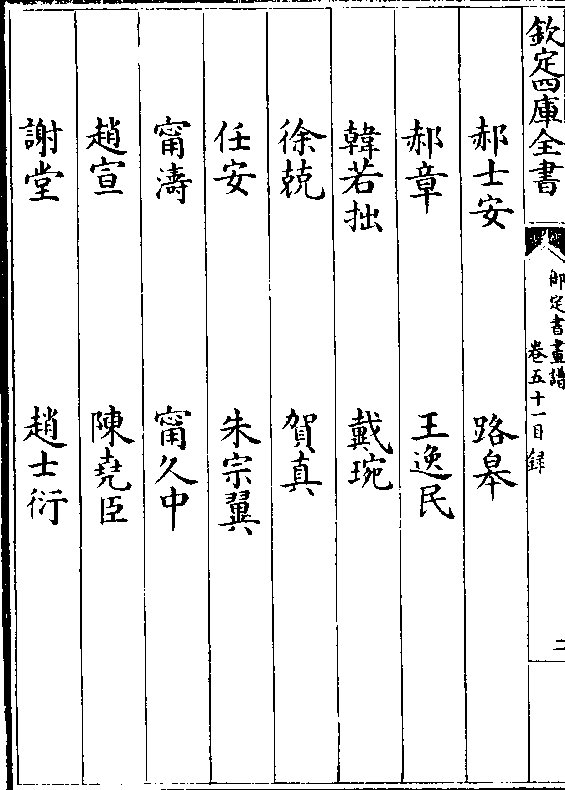 欽定四庫全書
御定書畫譜
卷五十一目録
二
郝士安 路皋
郝章 王逸民
韓若拙 戴琬
徐兢 賀真
任安 朱宗翼
甯濤 甯久中
趙宣 陳堯臣
謝堂 趙士衍